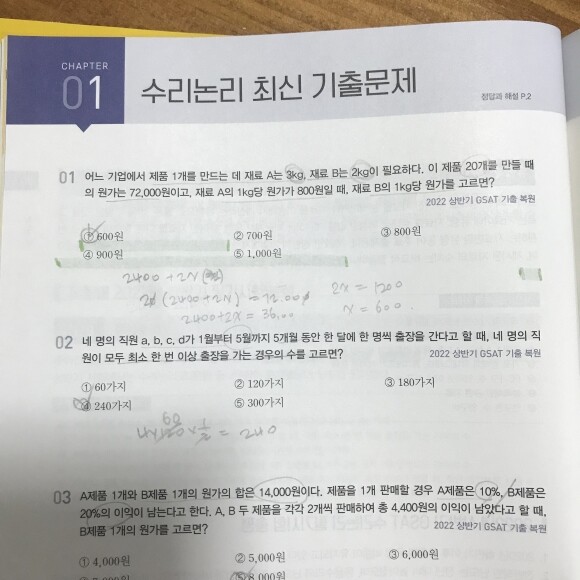 CHAPTER
01
수리논리 최신 기출문제
정답과 해설 P.2
01 어느 기업에서 제품 1개를 만드는 데 재료 A는 3kg, 재료 B는 2kg이 필요하다. 이 제품 20개를 만들 때
의 원가는 72,000원이고, 재료 A의 1kg당 원가가 800원일 때, 재료 B의 1kg당 원가를 고르면?
2022 상반기 GSAT 기출 복원
① 600원 ② 700원 ③ 800원
④ 900원 ⑤ 1,000원
2400+2x
(2400+2x) =
2x = 1200
2400+2x =
x = 600
02 네 명의 직원 a, b, c, d가 1월부터 5월까지 5개월 동안 한 달에 한 명씩 출장을 간다고 할 때, 네 명의 직
원이 모두 최소 한 번 이상 출장을 가는 경우의 수를 고르면? 2022 상반기 GSAT 기출 복원
① 60가지 ② 120가지 ③ 180가지
④ 240가지 ⑤ 300가지
= 240
03 A제품 1개와 B제품 1개의 원가의 합은 14,000원이다. 제품을 1개 판매할 경우 A제품은 10%, B제품은
20%의 이익이 남는다고 한다. A, B 두 제품을 각각 2개씩 판매하여 총 4,400원의 이익이 남았다고 할 때,
B제품 1개의 원가를 고르면? 2022 상반기 GSAT 기출 복원
① 4,000원 ② 5,000원 ③ 6,000원
⑤ 8,000원